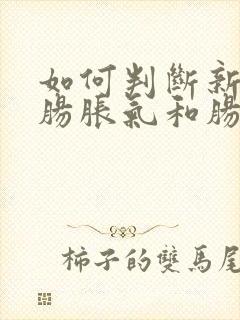 如何判斷新
腸脹氣和腸
柿子的雙馬尾